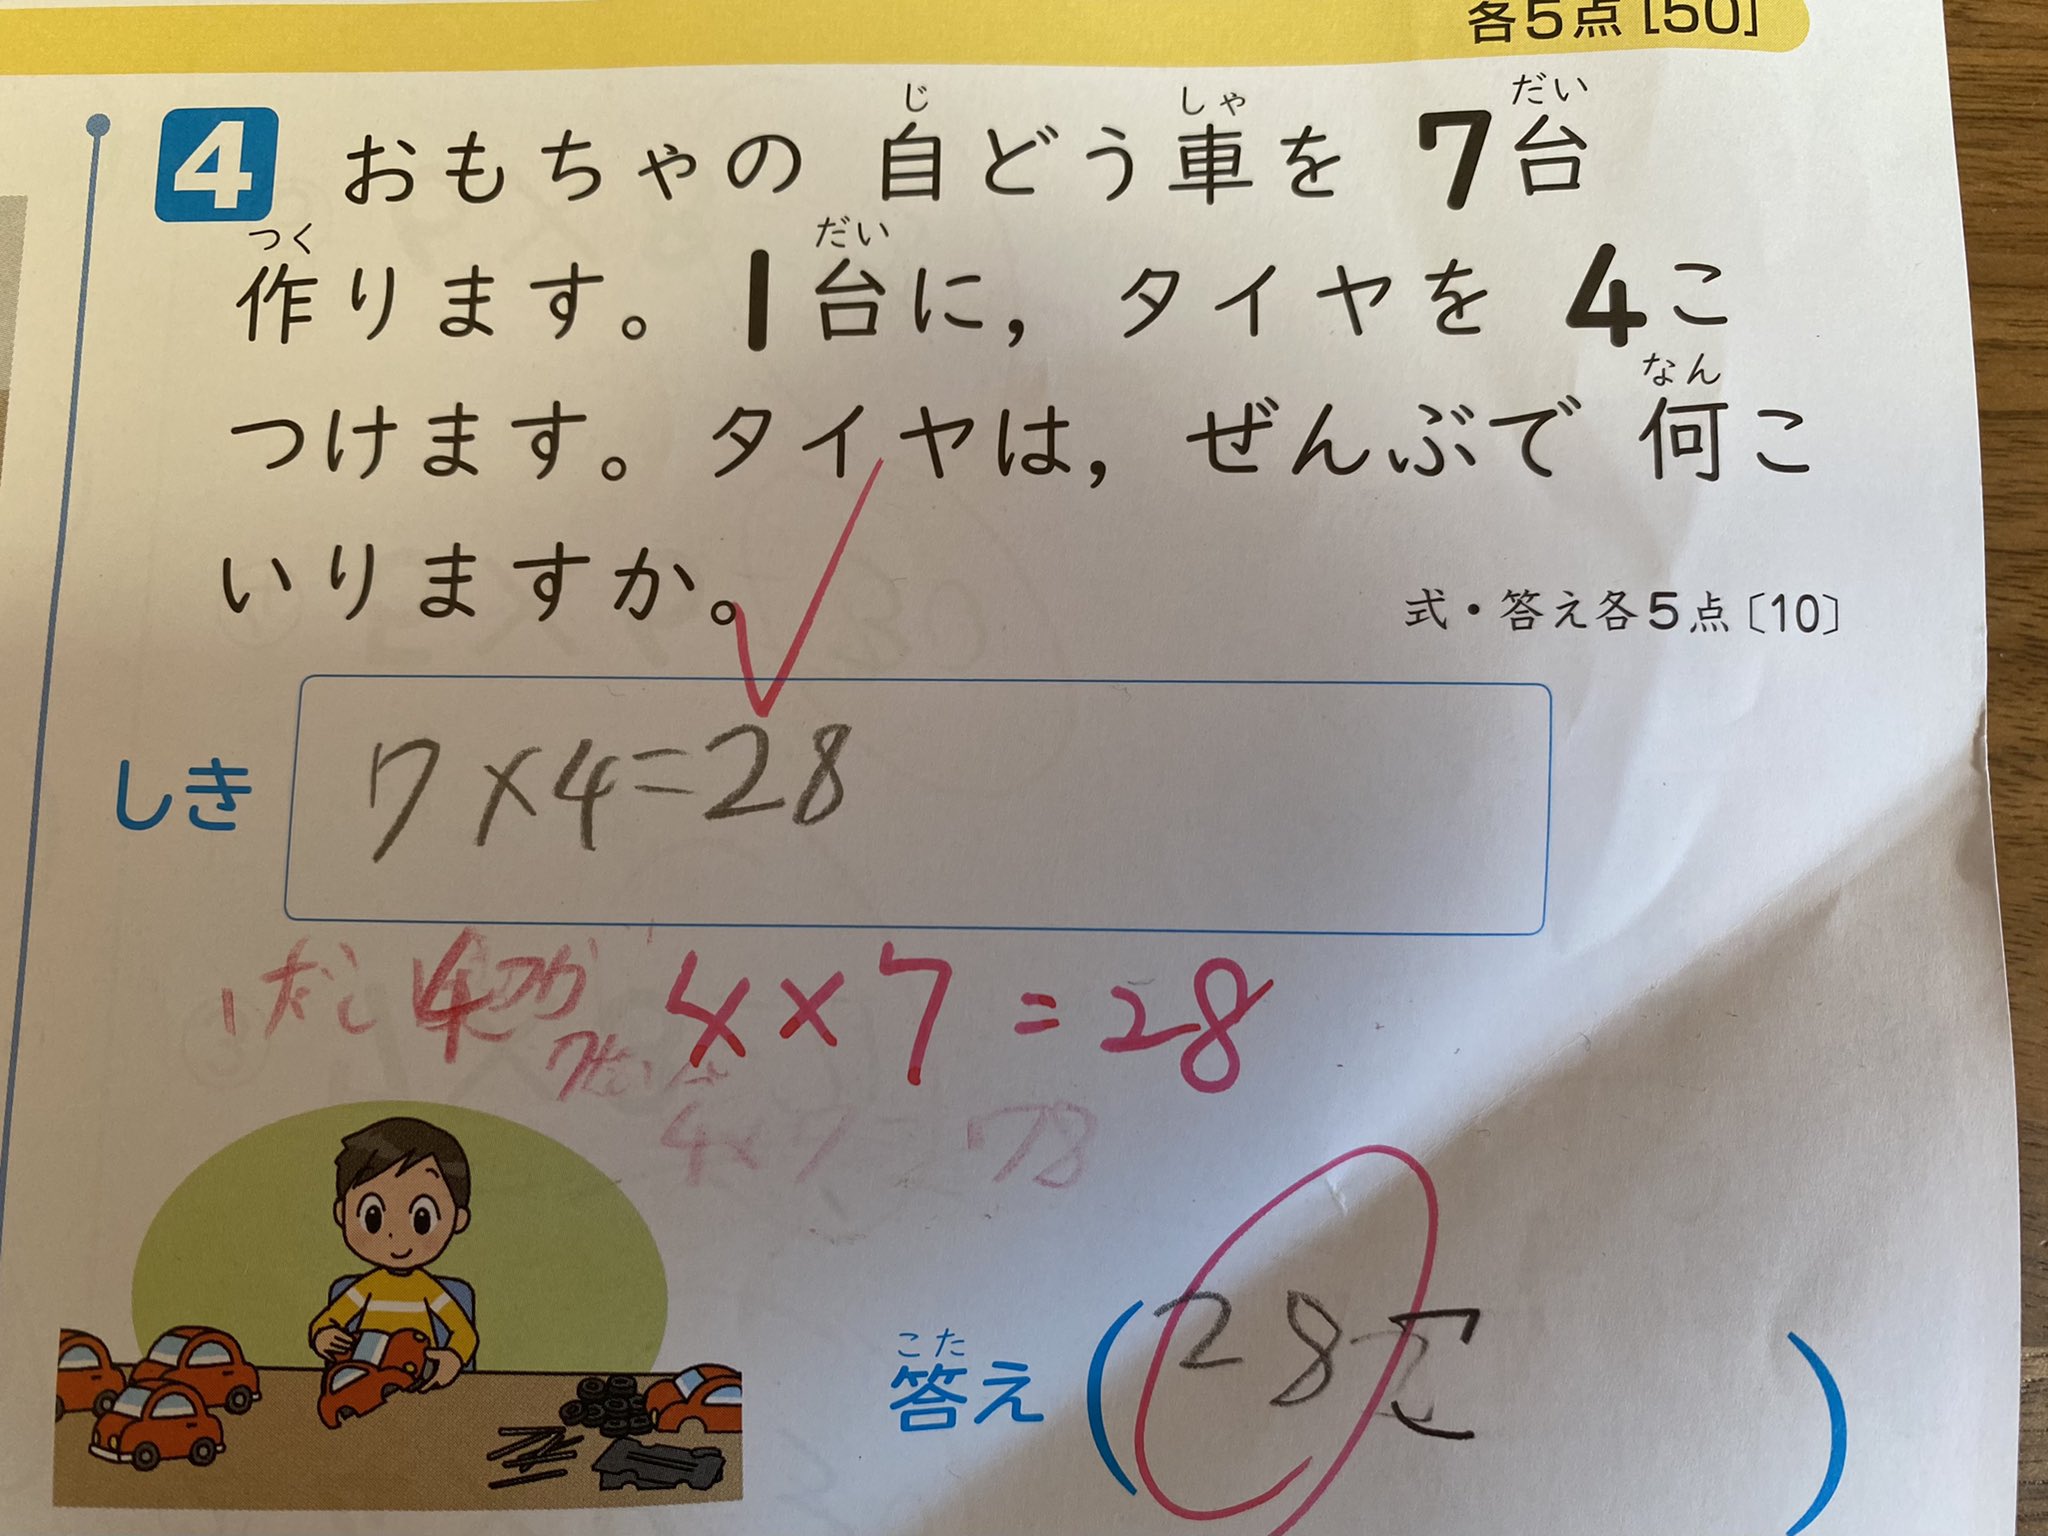 各5点[50]
4 おもちゃの 自どう車を 7台
じ しゃ だい
作ります。1台に，タイヤを 4こ
つく だい
つけます。タイヤは，ぜんぶで 何こ
なん
いりますか。
式・答え各5点〔10〕
しき 7×4=28
4×7=28
4×7=28
答え (28こ)
こた